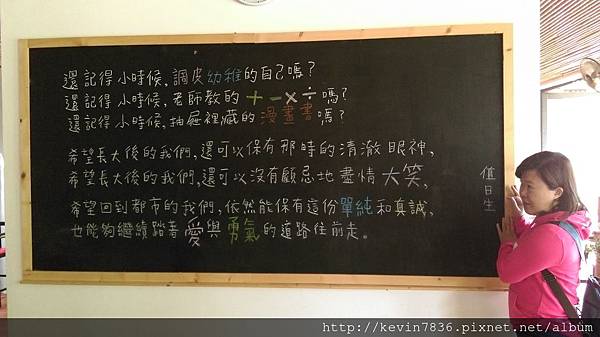 還記得小時候,調皮幼稚的自己嗎?
還記得小時候,老師教的+-×÷嗎?
還記得小時候,抽屜裡藏的漫畫書嗎?
希望長大後的我們,還可以保有那時的清澈眼神,
希望長大後的我們,還可以沒有顧忌地盡情大笑,
希望回到都市的我們,依然能保有這份單純和真誠,
也能夠繼續踏著愛與勇氣的道路往前走。
值日生
http://kevin7836.pixnet.net/album